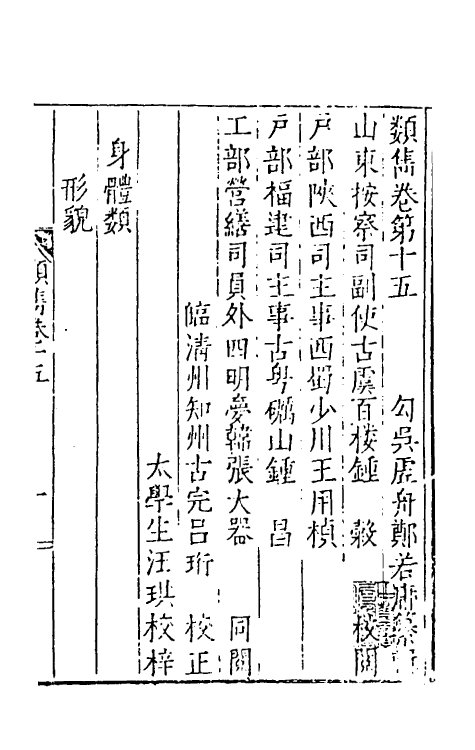 類雋卷第十五　勾吳虛舟鄭若庸
山東按察司副使古虞百楼鍾　穀　校閱
戸部陝西司主事西蜀少川王用楨
戸部福建司主事古粤礪山鍾　昌
工部營繕司員外四明夢韓張大器　同閱
臨清州知州古完呂珩　校正
太學生汪珙校梓
身體類
形貌
類雋卷十五
一